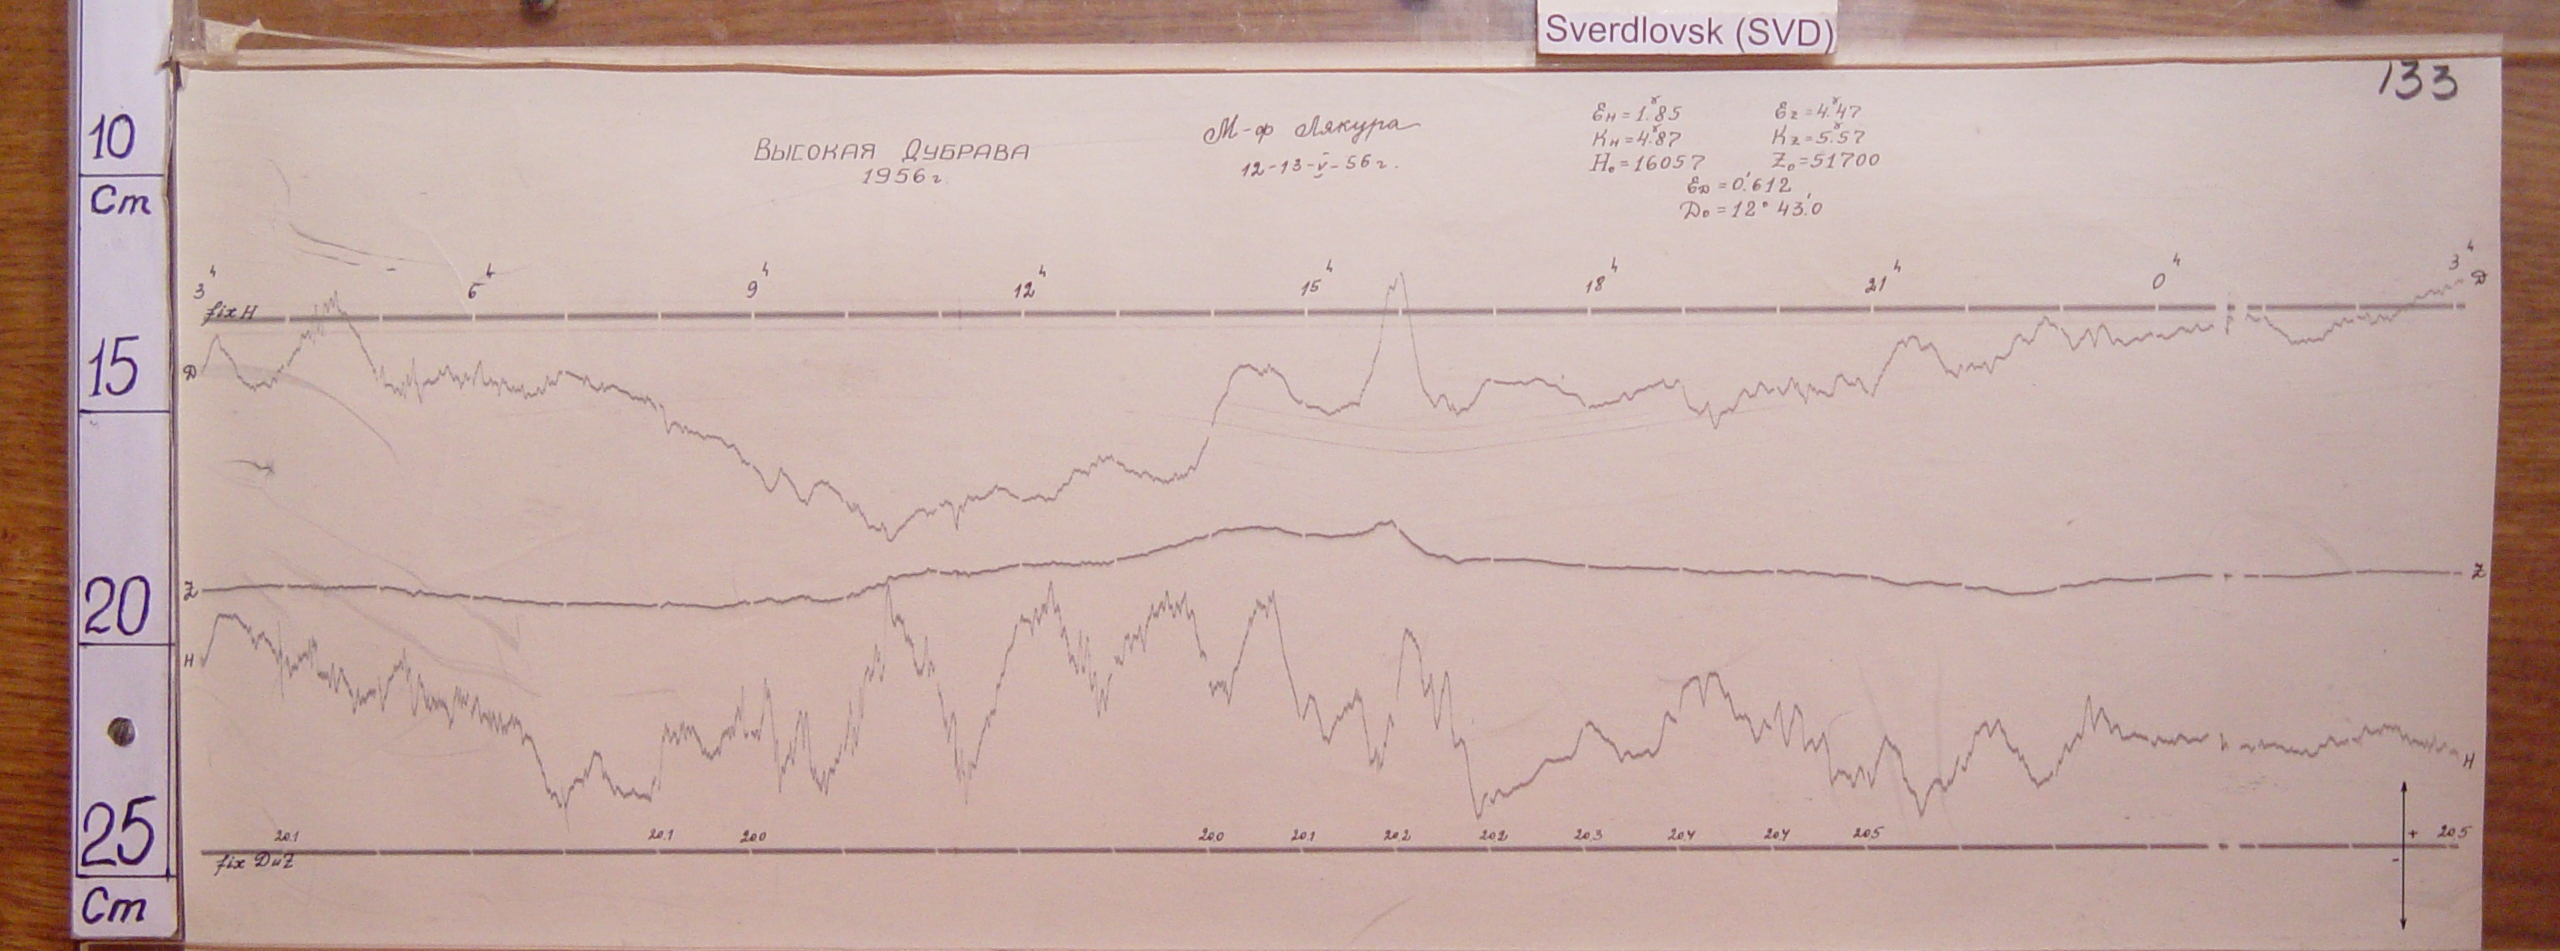 Sverdlovsk (SVD)
133
10
Cm
15
20
25
Cm
Высокая Дубрава
1956г.
М-ф Лякура
12-13-V-56г.
Ɛн=1.ˠ85 Ɛz=4.ˠ47
Kн=4.ˠ87 Kz=5.ˠ57
H₀=16057 Z₀=51700
ƐD=0.'612
D₀=12° 43.'0
3ч 6ч 9ч 12ч 15ч 18ч 21ч 0ч 3ч
fix H
D D
Z Z
H H
20.1 20.1 20.0 20.0 20.1 20.2 20.2 20.3 20.4 20.4 20.5 + 20.5
fix D и Z -